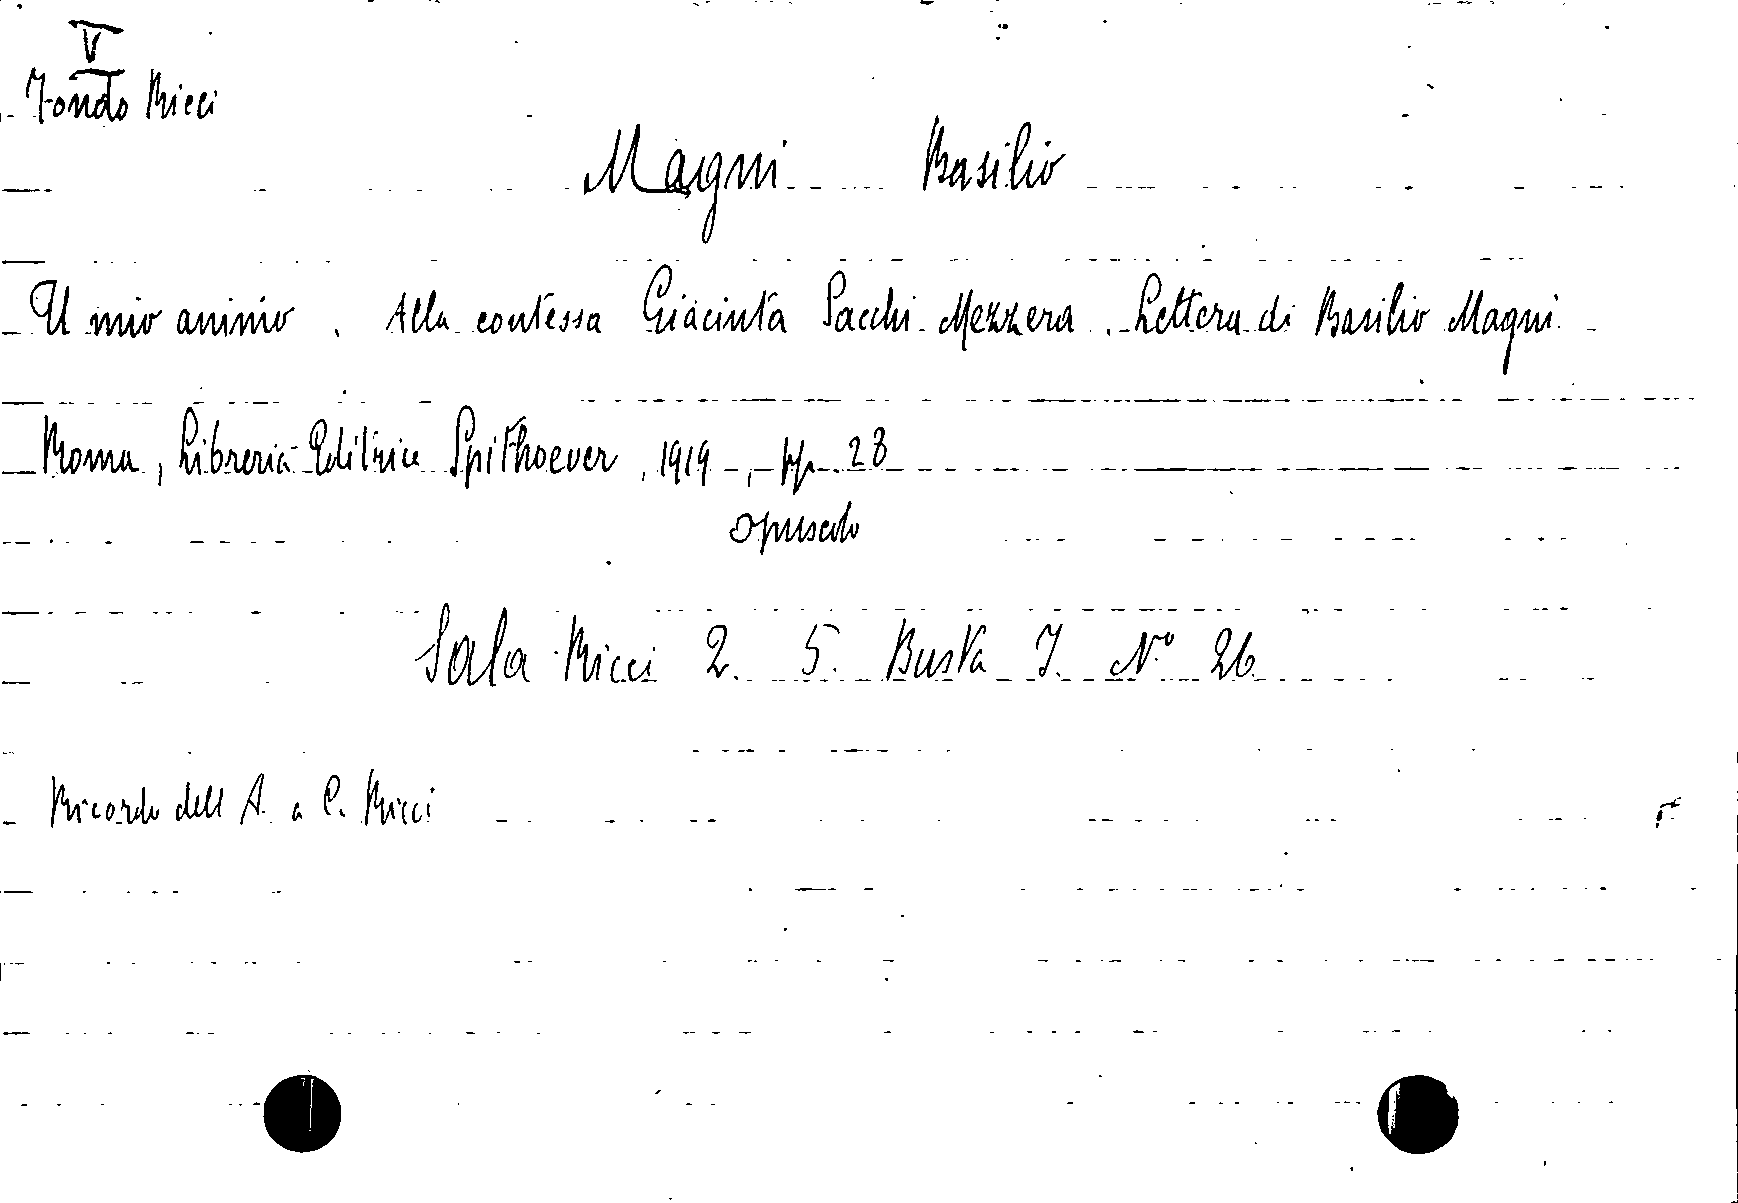 V
Fondo Ricci
Magni Basilio
Il mio animo. Alla contessa Giacinta Sacchi-Mezzera. Lettera di Basilio Magni
Roma, Libreria Editrice Spithoever, 1919, pp. 28
opuscolo
Sala Ricci 2. 5. Busta I. N.° 26
Ricordo dell A. a C. Ricci